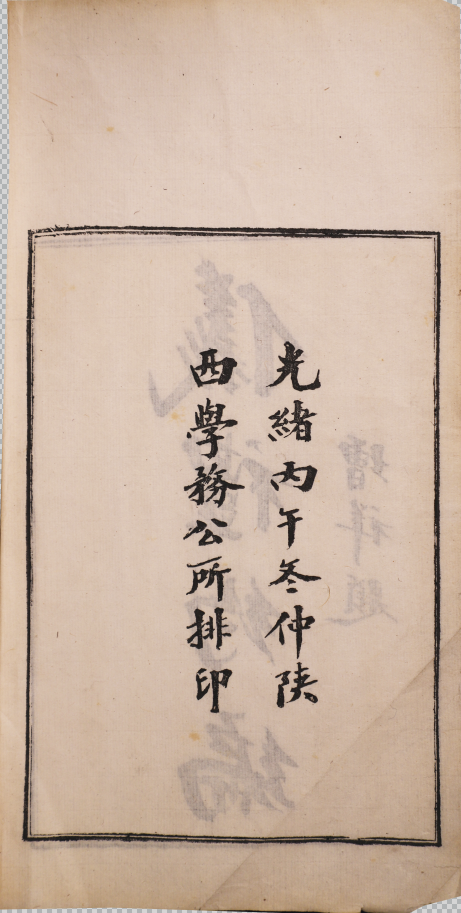 光緒丙午冬仲陝
西學務公所排印